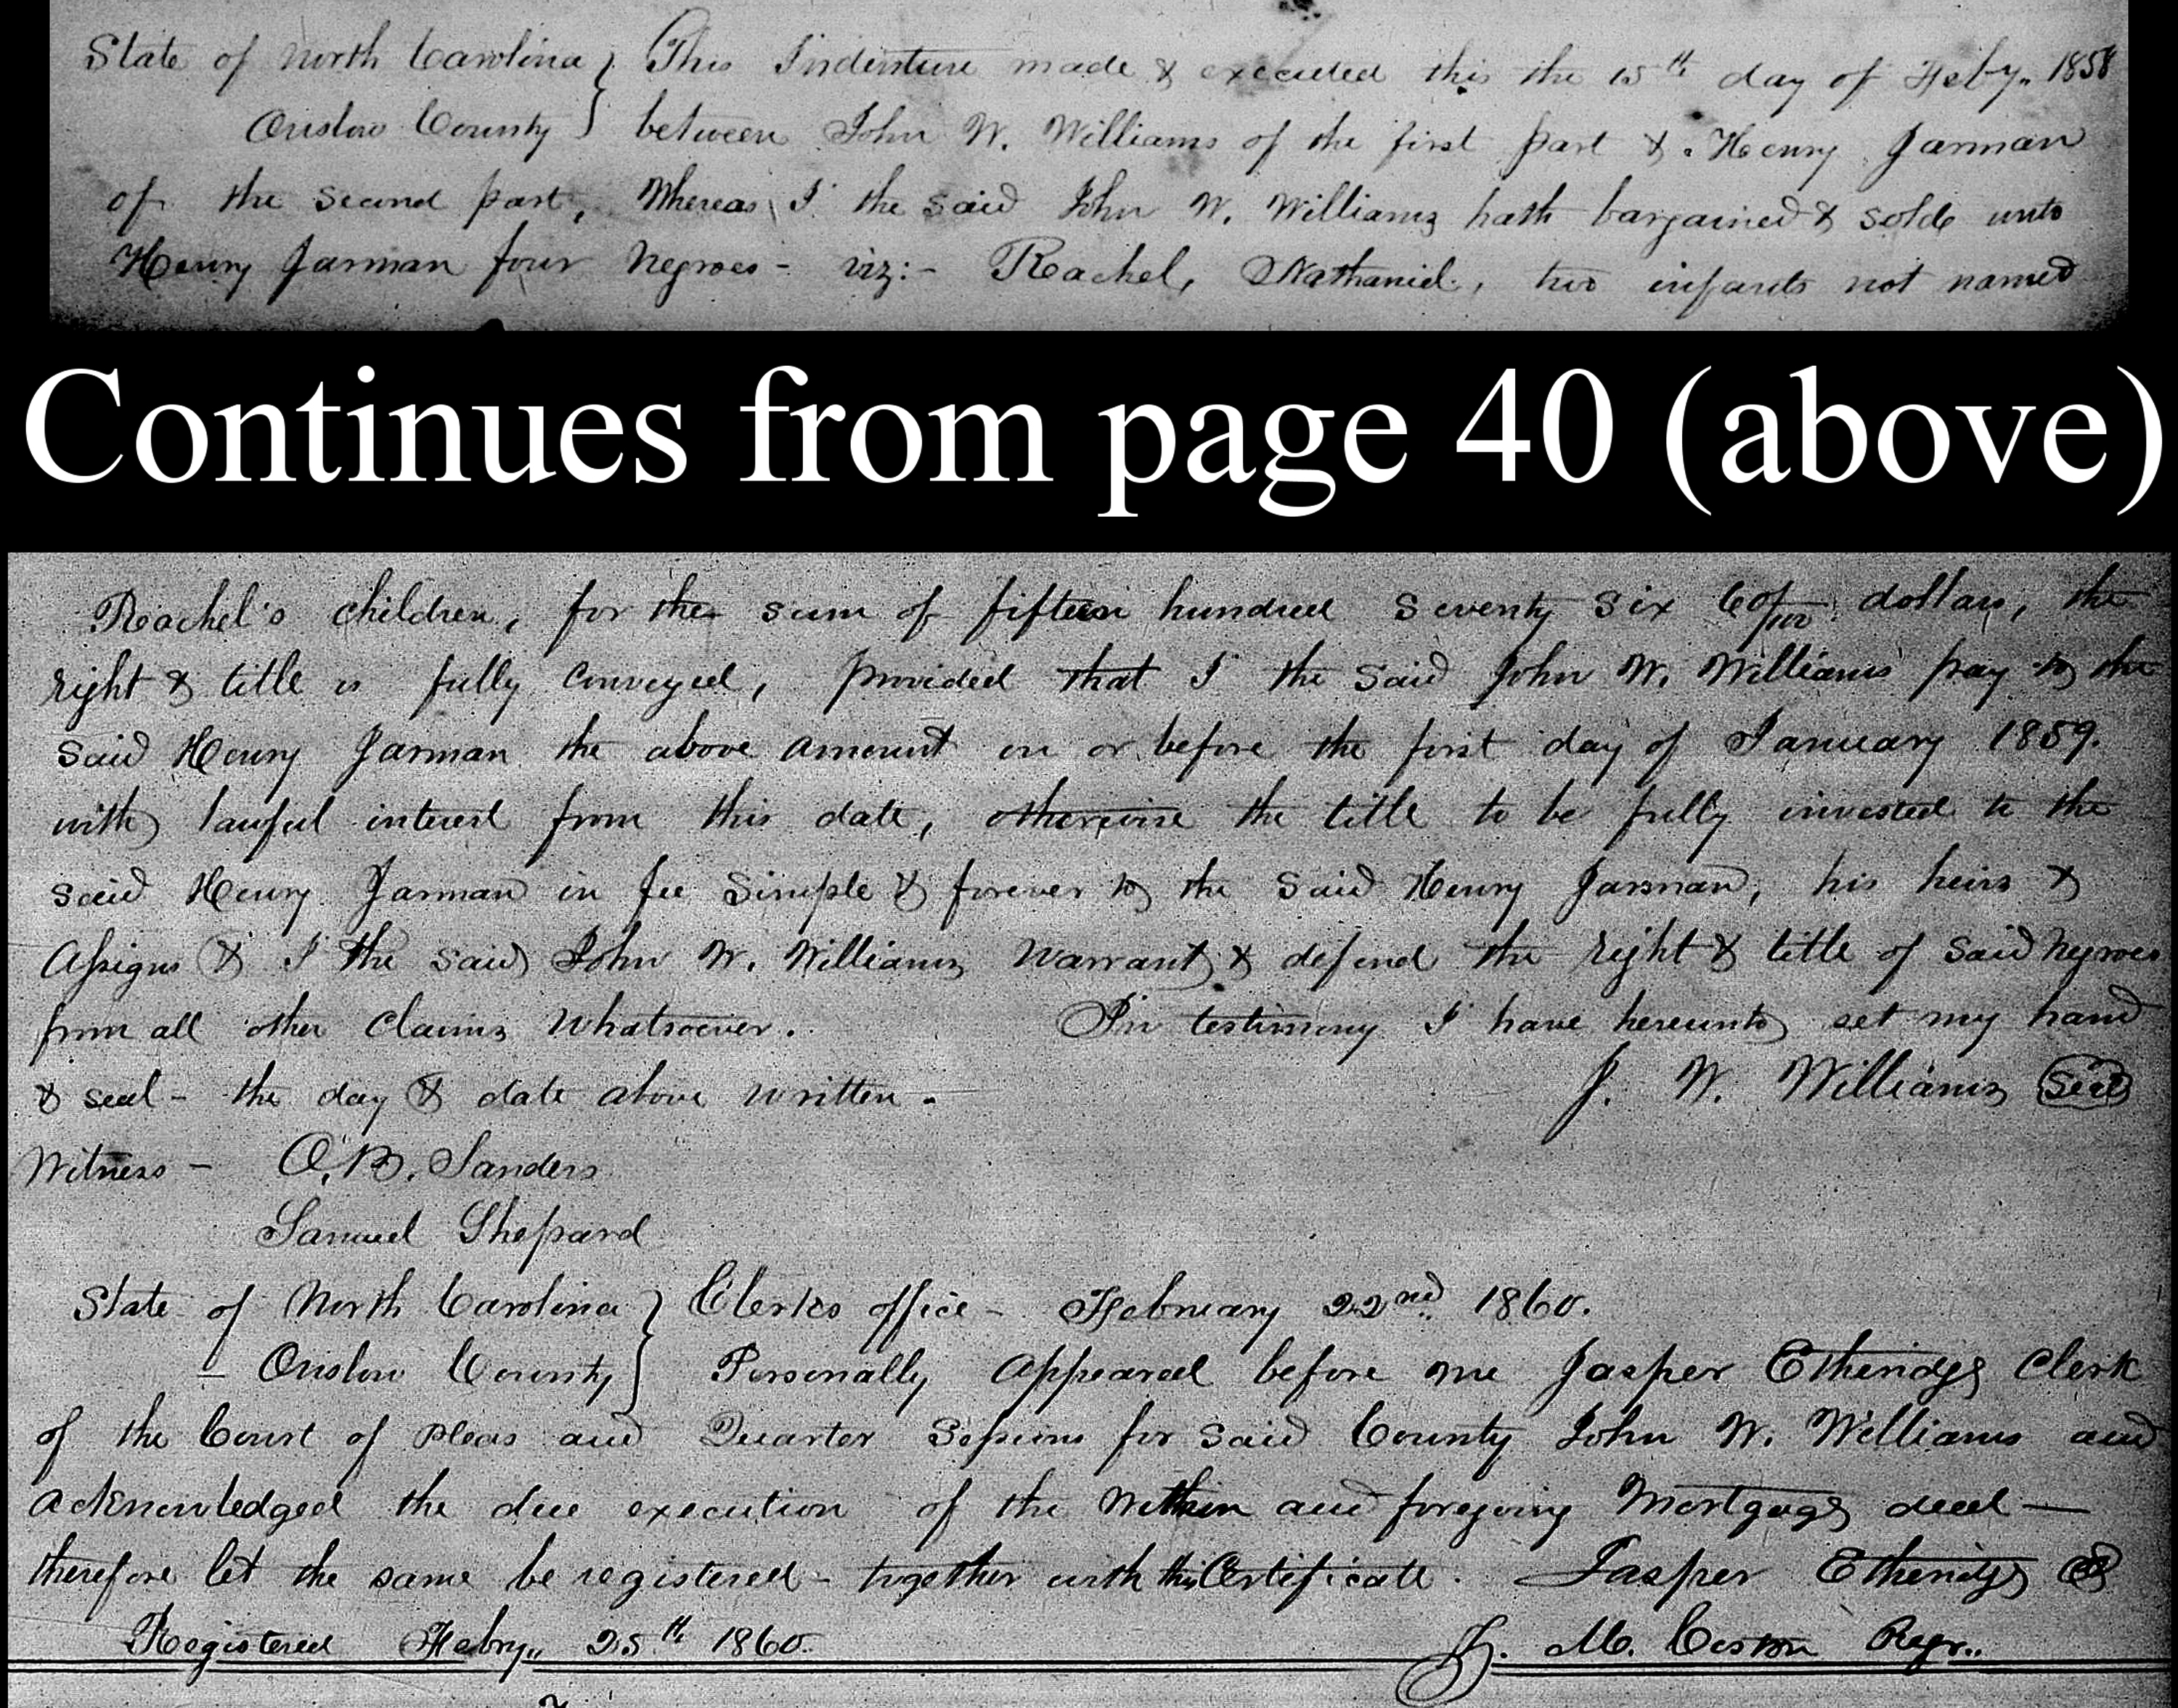 State of North Carolina } This Indenture made & executed this the 15th day of Feby,, 1858
Onslow County } between John W. Williams of the first part & Henry Jarman
of the second part, Whereas I the said John W. Williams hath bargained & solde unto
Henry Jarman four Negroes - viz:- Rachel, Nathaniel, two infants not named
Continues from page 40 (above)
Rachel's children, for the sum of fifteen hundred seventy six 60/100 dollars, the
right & title is fully conveyed, provided that I the said John W. Williams pay to the
said Henry Jarman the above amount on or before the first day of January 1859.
with lawful interest from this date, otherwise the title to be fully invested to the
said Henry Jarman in fee simple & forever to the said Henry Jarman, his heirs &
Assigns & I the said John W. Williams warrant & defend the right & title of said Negroes
from all other claims whatsoever. In testimony I have hereunto set my hand
& seal - the day & date above written -
J. W. Williams Seal
Witness - O. B. Sanders
Samuel Shepard
State of North Carolina } Clerks office - February 22nd 1860.
- Onslow County } Personally appeared before me Jasper Etheridge Clerk
of the Court of Pleas and Quarter Sessions for said County John W. Williams and
acknowledged the due execution of the within and foregoing Mortgage deed —
therefore let the same be registered - together with this Certificate. Jasper Etheridge
Registered Febry,, 25th 1860. M. Regr..